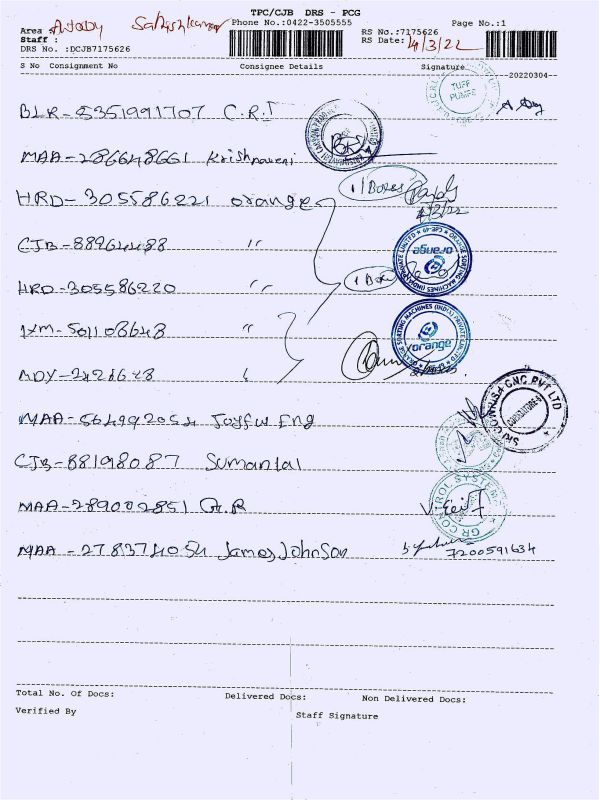 TPC/CJB DRS - PCG
Area : Sathishkumar Phone No.:0422-3505555 Page No.:1
Staff : RS No.:7175626
DRS No. :DCJB7175626 RS Date: 4/3/22
S No Consignment No Consignee Details Signature
20220304
TUFF PUMPS
BLR-5351991707 C.R.I
MAA-286648661 Krishnaveni
1 Boxes
HRD-305586221 orange
4/3/22
CJB-88964488 "
orange
HRD-305586220 "
1 Box
IXM-501108648 "
ORANGE SORTING MACHINES (INDIA) PRIVATE LIMITED
orange
"
SRI CNC PVT LTD
MAA-564992054 Joyful Eng
CJB-88198087
MAA-289002851 G.R
GR CONTROL SYSTEMS
MAA-278374054 James Johnson
7200591634
Total No. Of Docs: Delivered Docs: Non Delivered Docs:
Verified By Staff Signature